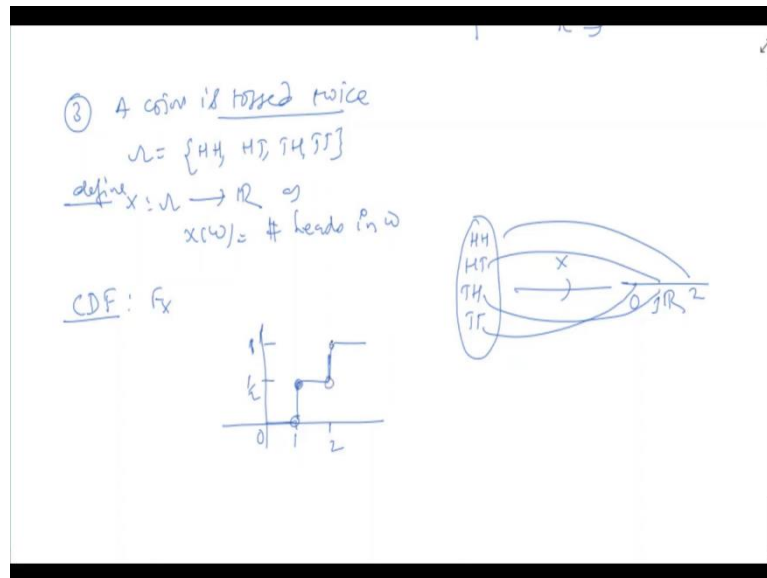 ③ A coin is tossed twice
Ω = {HH, HT, TH, TT}
define X : Ω → ℝ as
X(ω) = # heads in ω
HH
HT
TH
TT
X
0 1 ℝ 2
CDF : Fx
1
1/2
0 1 2